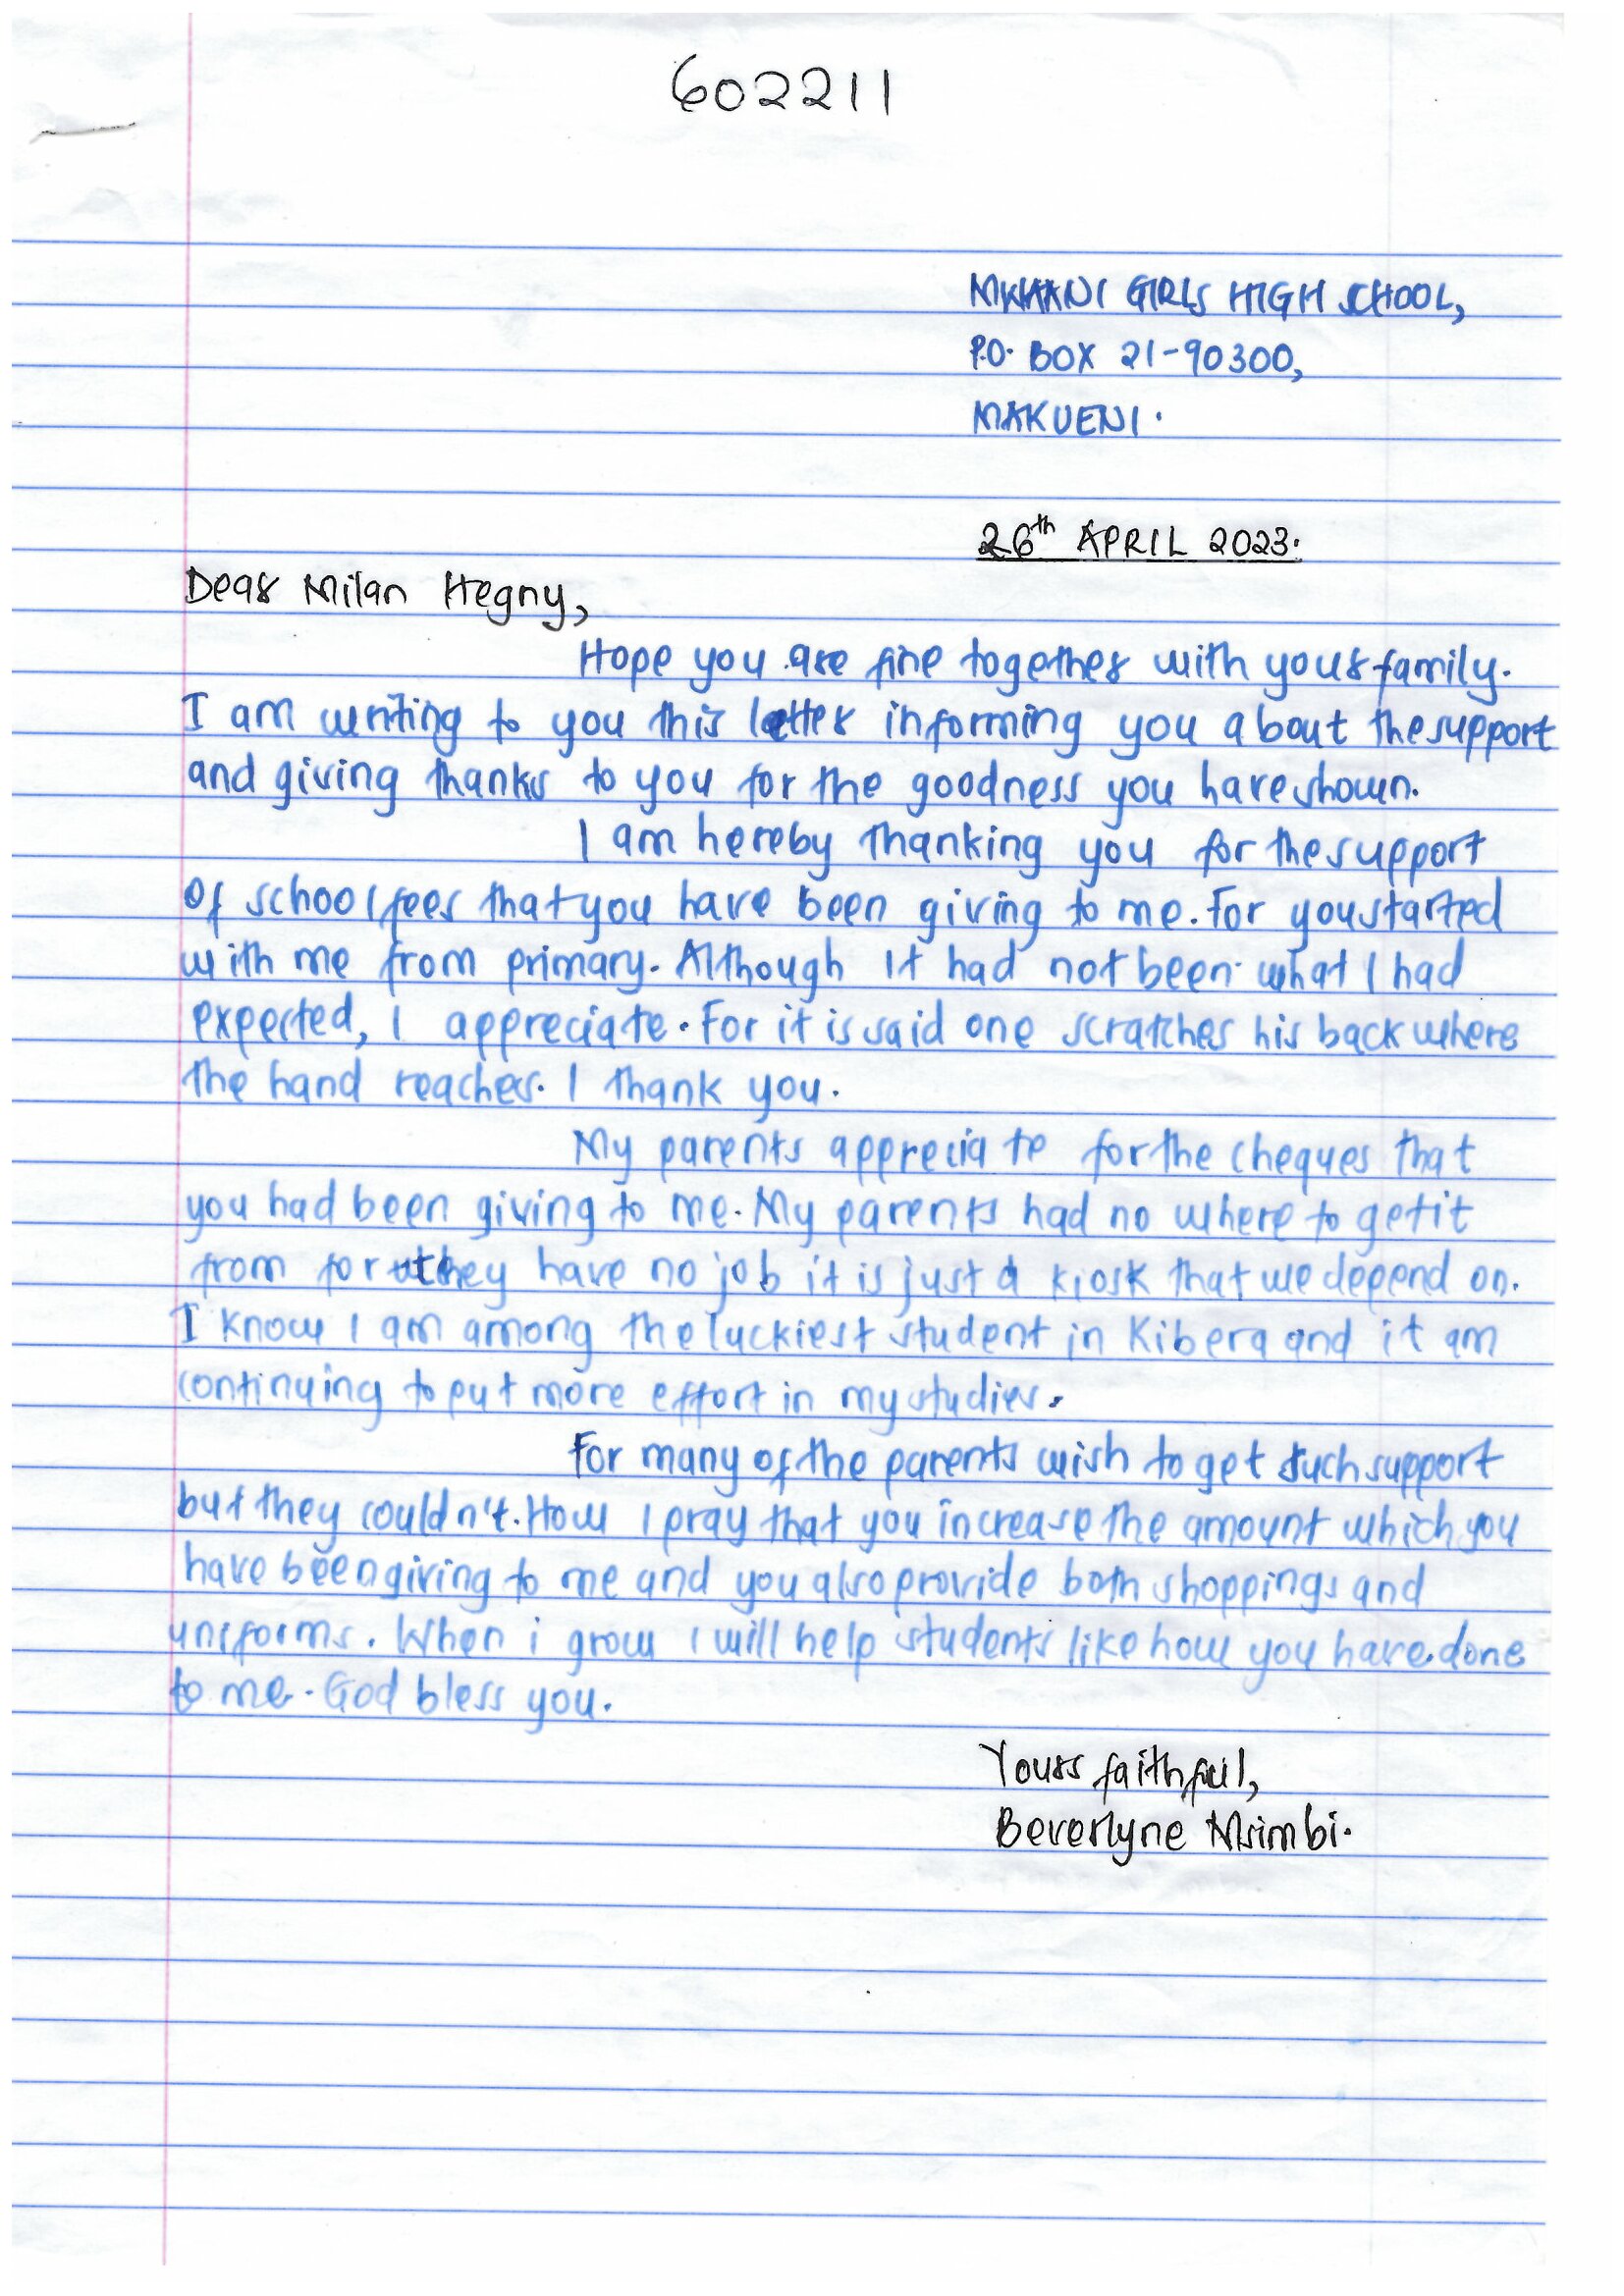 602211
MWAANI GIRLS HIGH SCHOOL,
P.O. BOX 21-90300,
MAKUENI.
26th APRIL 2023.
Dear Milan Hegny,
Hope you are fine together with your family.
I am writing to you this letter informing you about the support
and giving thanks to you for the goodness you have shown.
I am hereby thanking you for the support
Of school fees that you have been giving to me. For you started
with me from primary. Although it had not been what I had
expected, I appreciate. For it is said one scratches his back where
the hand reaches. I thank you.
My parents appreciate for the cheques that
you had been giving to me. My parents had no where to get it
from for they have no job it is just a kiosk that we depend on.
I know I am among the luckiest student in Kibera and it am
continuing to put more effort in my studies.
For many of the parents wish to get such support
but they couldn't. How I pray that you increase the amount which you
have been giving to me and you also provide both shoppings and
uniforms. When i grow I will help students like how you have done
to me. God bless you.
Yours faithful,
Beverlyne